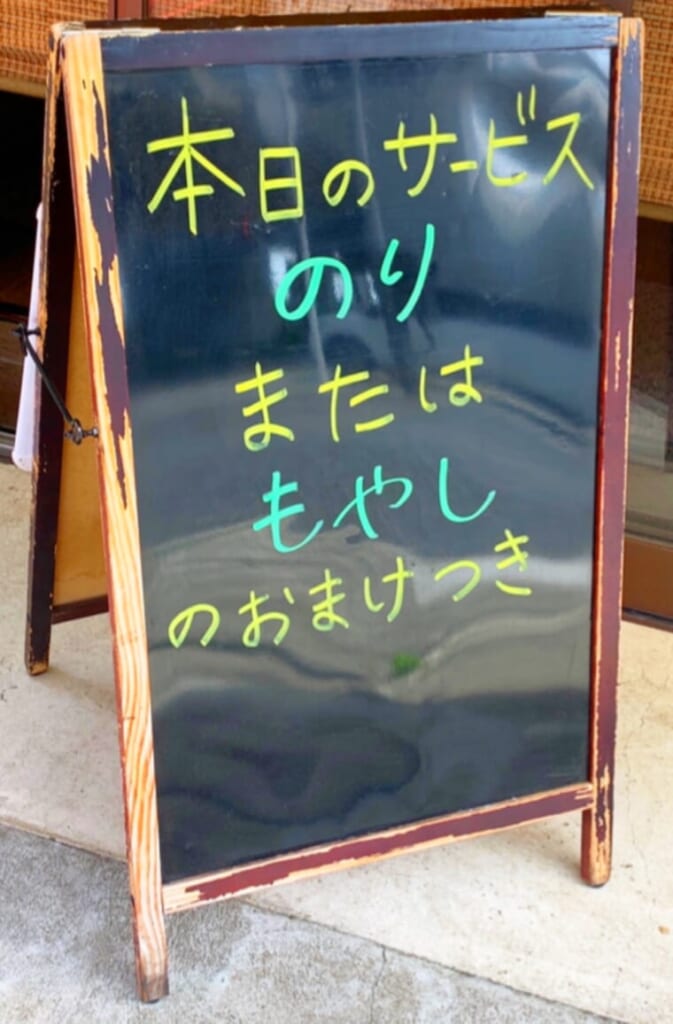 本日のサービス
のり
または
もやし
のおまけつき